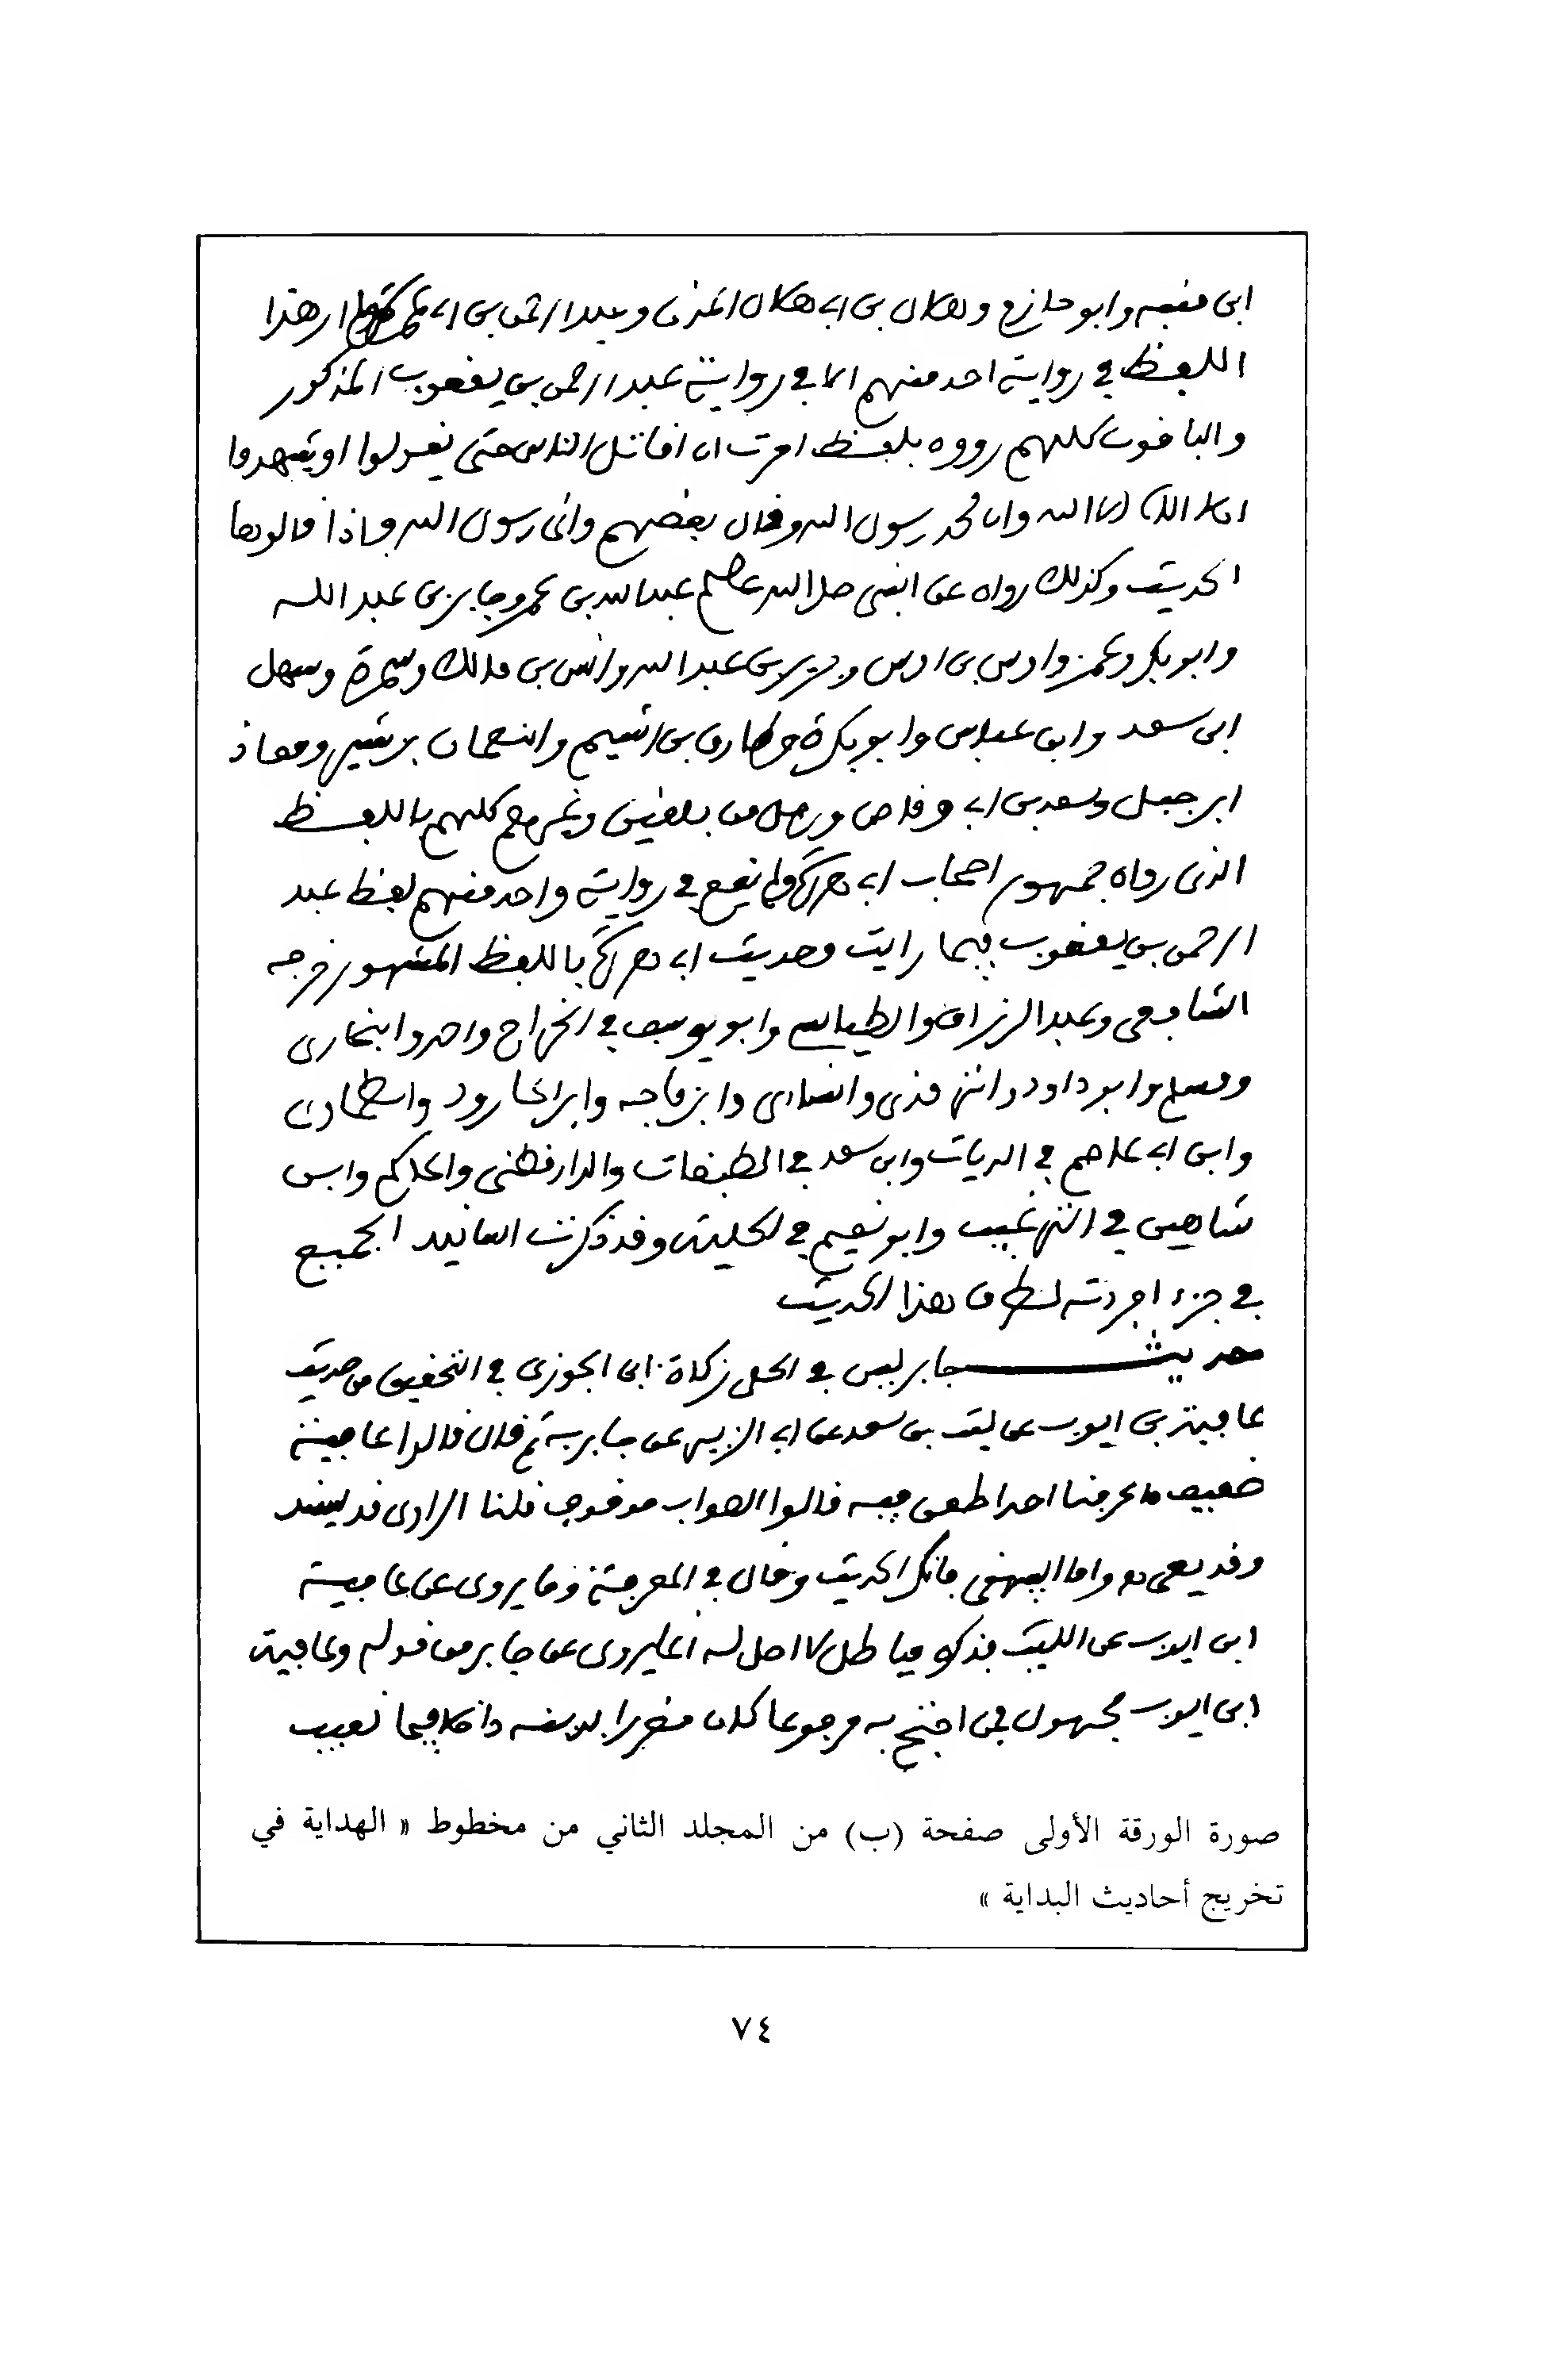 ابن منبه وابو حازم وهلال بن ابي هلال المزني وعبد الرحمن بن ابي عمرة ولم ار هذا
اللفظ في رواية احد منهم الا في رواية عبد الرحمن بن يعقوب المذكور
والباقون كلهم رووه بلفظ امرت ان اقاتل الناس حتى يقولوا او يشهدوا
ان لا اله الا الله وان محمد رسول الله وقال بعضهم واني رسول الله فاذا قالوها
الحديث وكذلك رواه عن النبي صلى الله عليه وسلم عبد الله بن عمر وجابر بن عبد الله
وابو بكر وعمر واوس بن اوس وجرير بن عبد الله وانس بن مالك وسمرة وسهل
ابن سعد وابن عباس وابو بكرة وطارق بن اشيم والنعمان بن بشير ومعاذ
ابن جبل وسعد بن ابي وقاص ورجل من بلقين وغيرهم كلهم باللفظ
الذي رواه جمهور اصحاب ابي هريرة ولم يقع في رواية واحد منهم لفظ عبد
الرحمن بن يعقوب فيما رايت وحديث ابي هريرة باللفظ المشهور خرجه
الشافعي وعبد الرزاق والطيالسي وابو يوسف في الخراج واحمد والبخاري
ومسلم وابو داود والترمذي والنسائي وابن ماجه وابن الجارود والطحاوي
وابن ابي عاصم في الديات وابن سعد في الطبقات والدارقطني والحاكم وابن
شاهين في الترغيب وابو نعيم في الحلية وقد ذكرت اسانيد الجميع
في جزء افردته لطرق هذا الحديث
حديث جابر ليس في الحلي زكاة ابن الجوزي في التحقيق من حديث
عافية بن ايوب عن ليث بن سعد عن ابي الزبير عن جابر به ثم قال قالوا عافية
ضعيف ما عرفنا احدا طعن فيه قالوا الصواب موقوف قلنا الراوي قد يسند
وقد يفتي به واما البيهقي فانكر الحديث وقال في المعرفة وما يروى عن عافية
ابن ايوب عن الليث فذكره فباطل لا اصل له انما يروى عن جابر من قوله وعافية
ابن ايوب مجهول فمن احتج به مرفوعا كان مغررا بدينه داخلا فيما نعيب
صورة الورقة الأولى صفحة (ب) من المجلد الثاني من مخطوط « الهداية في
تخريج أحاديث البداية »
٧٤